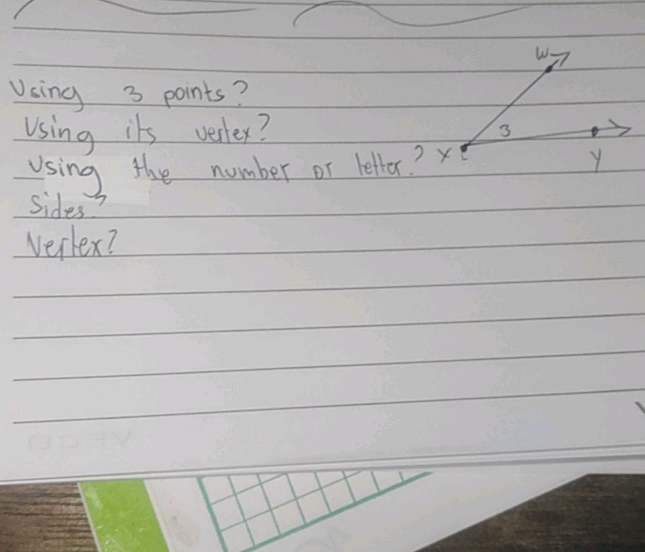 Using 3 points?
Using its vertex?
Using the number or letter?
Sides?
Vertex?
W
3
X
Y